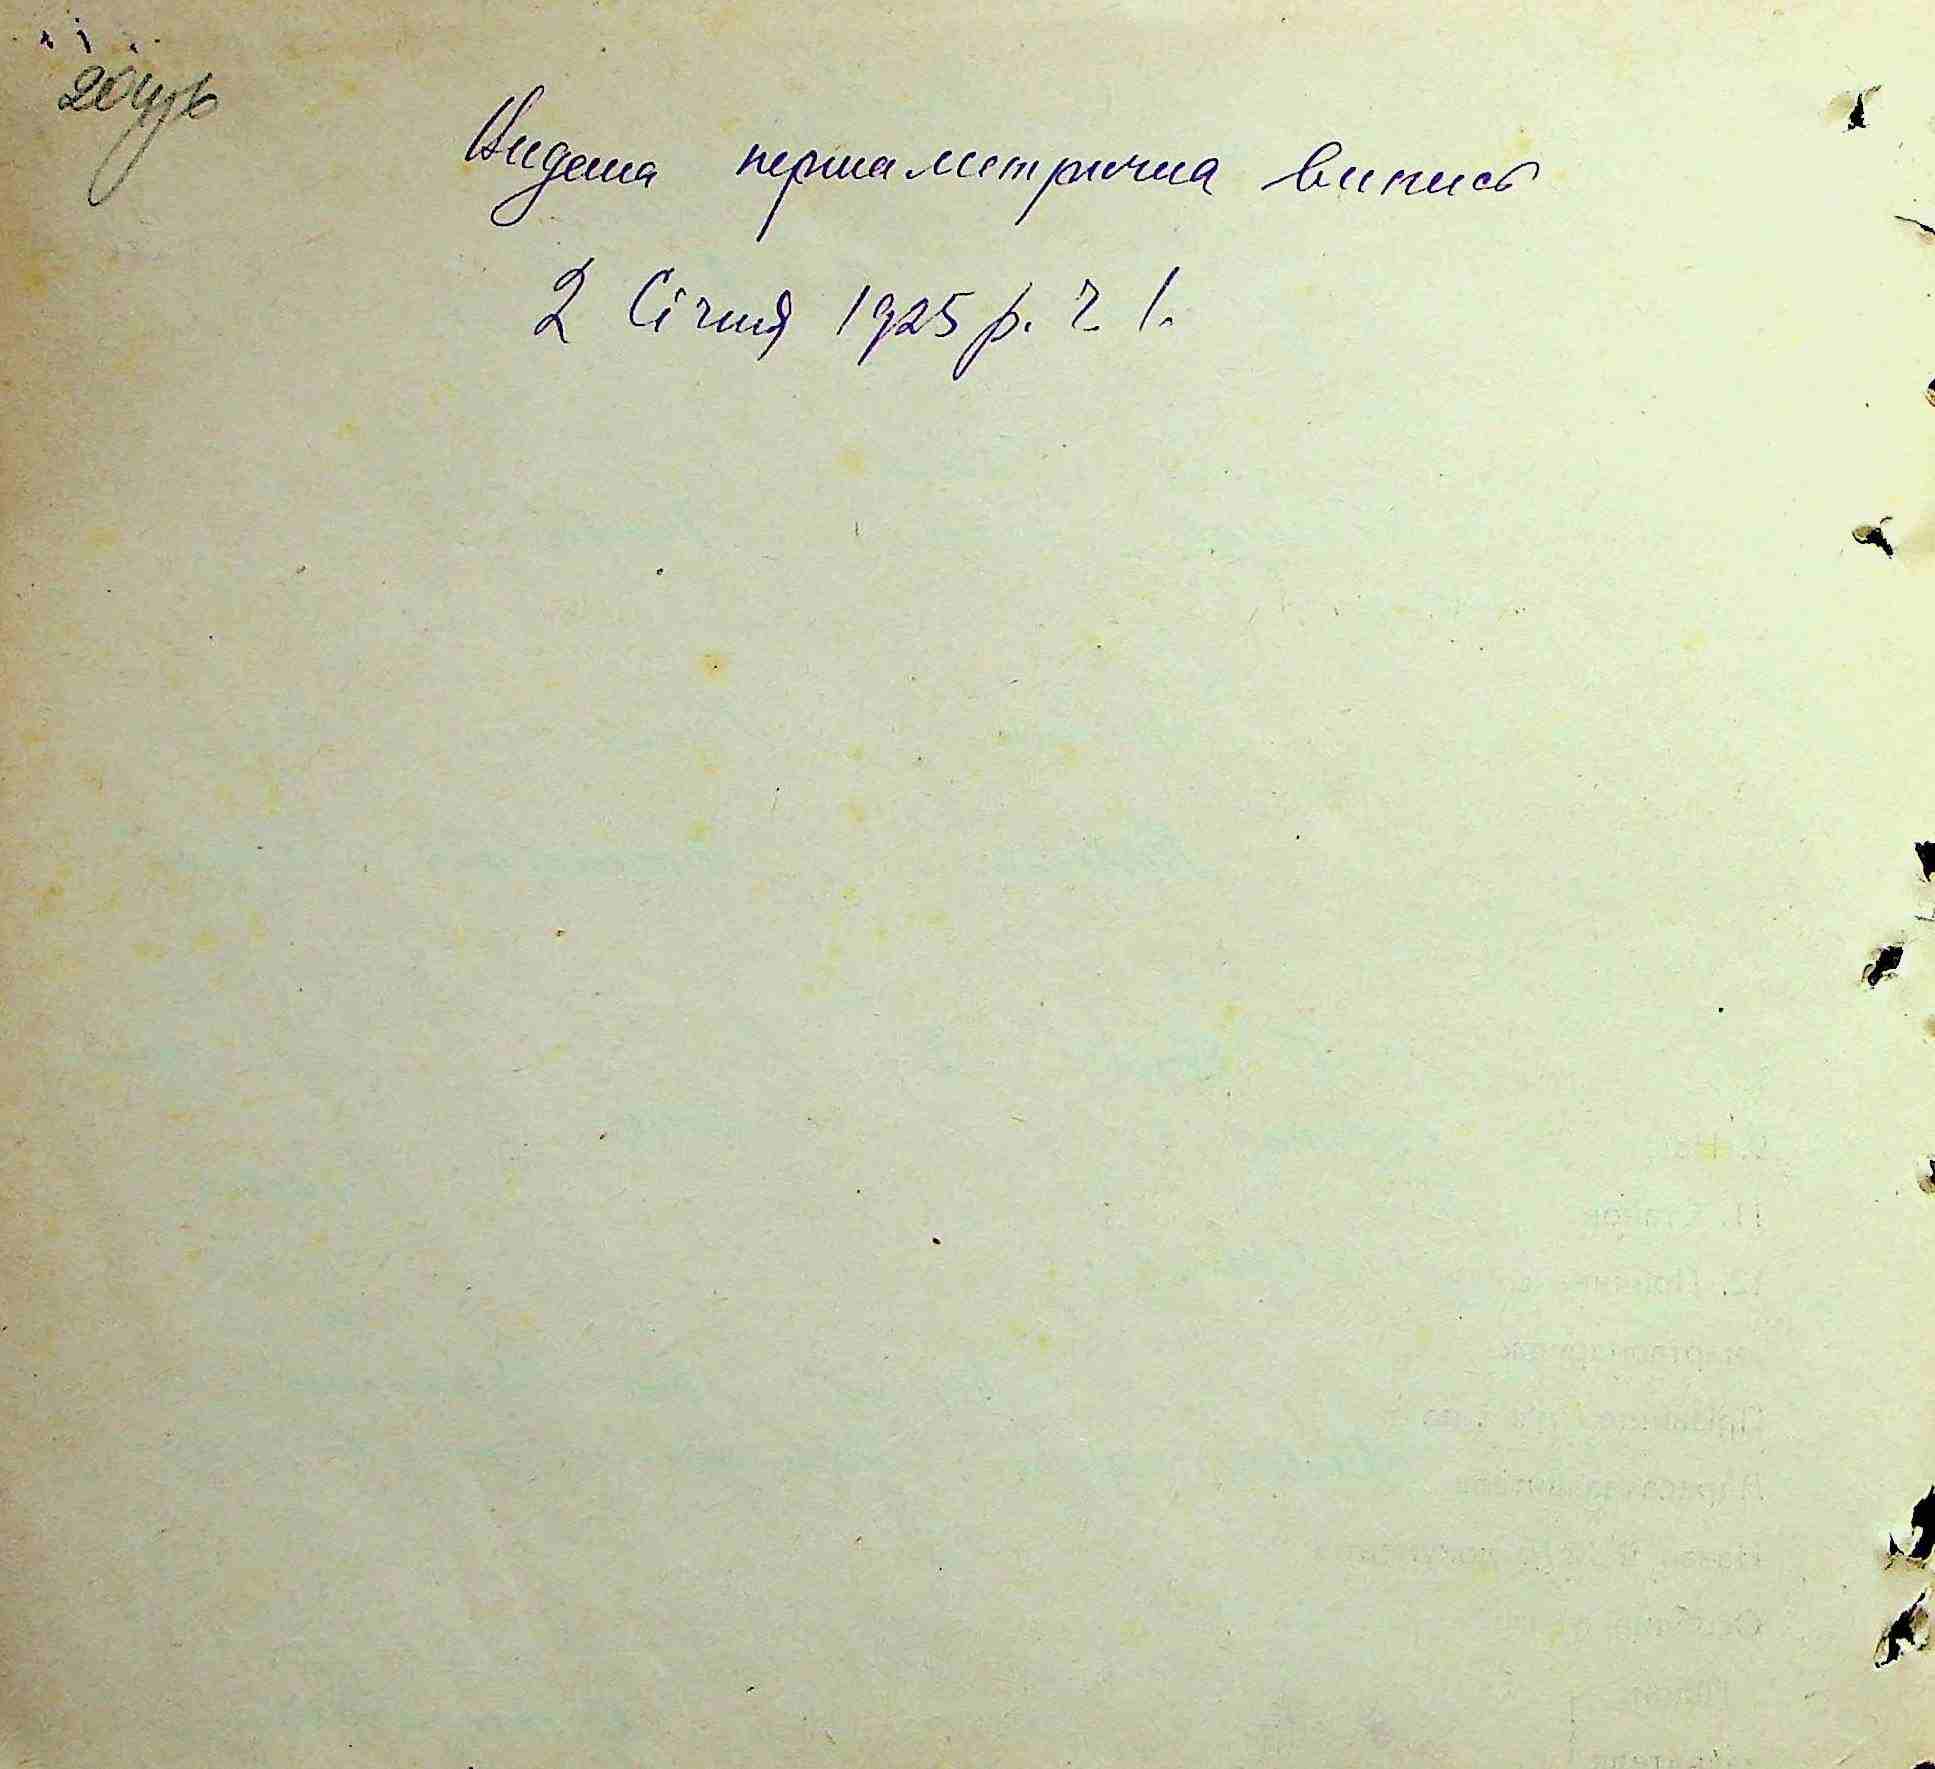 Видана перша метрична випись
2 Січня 1925 р. ч. 1.